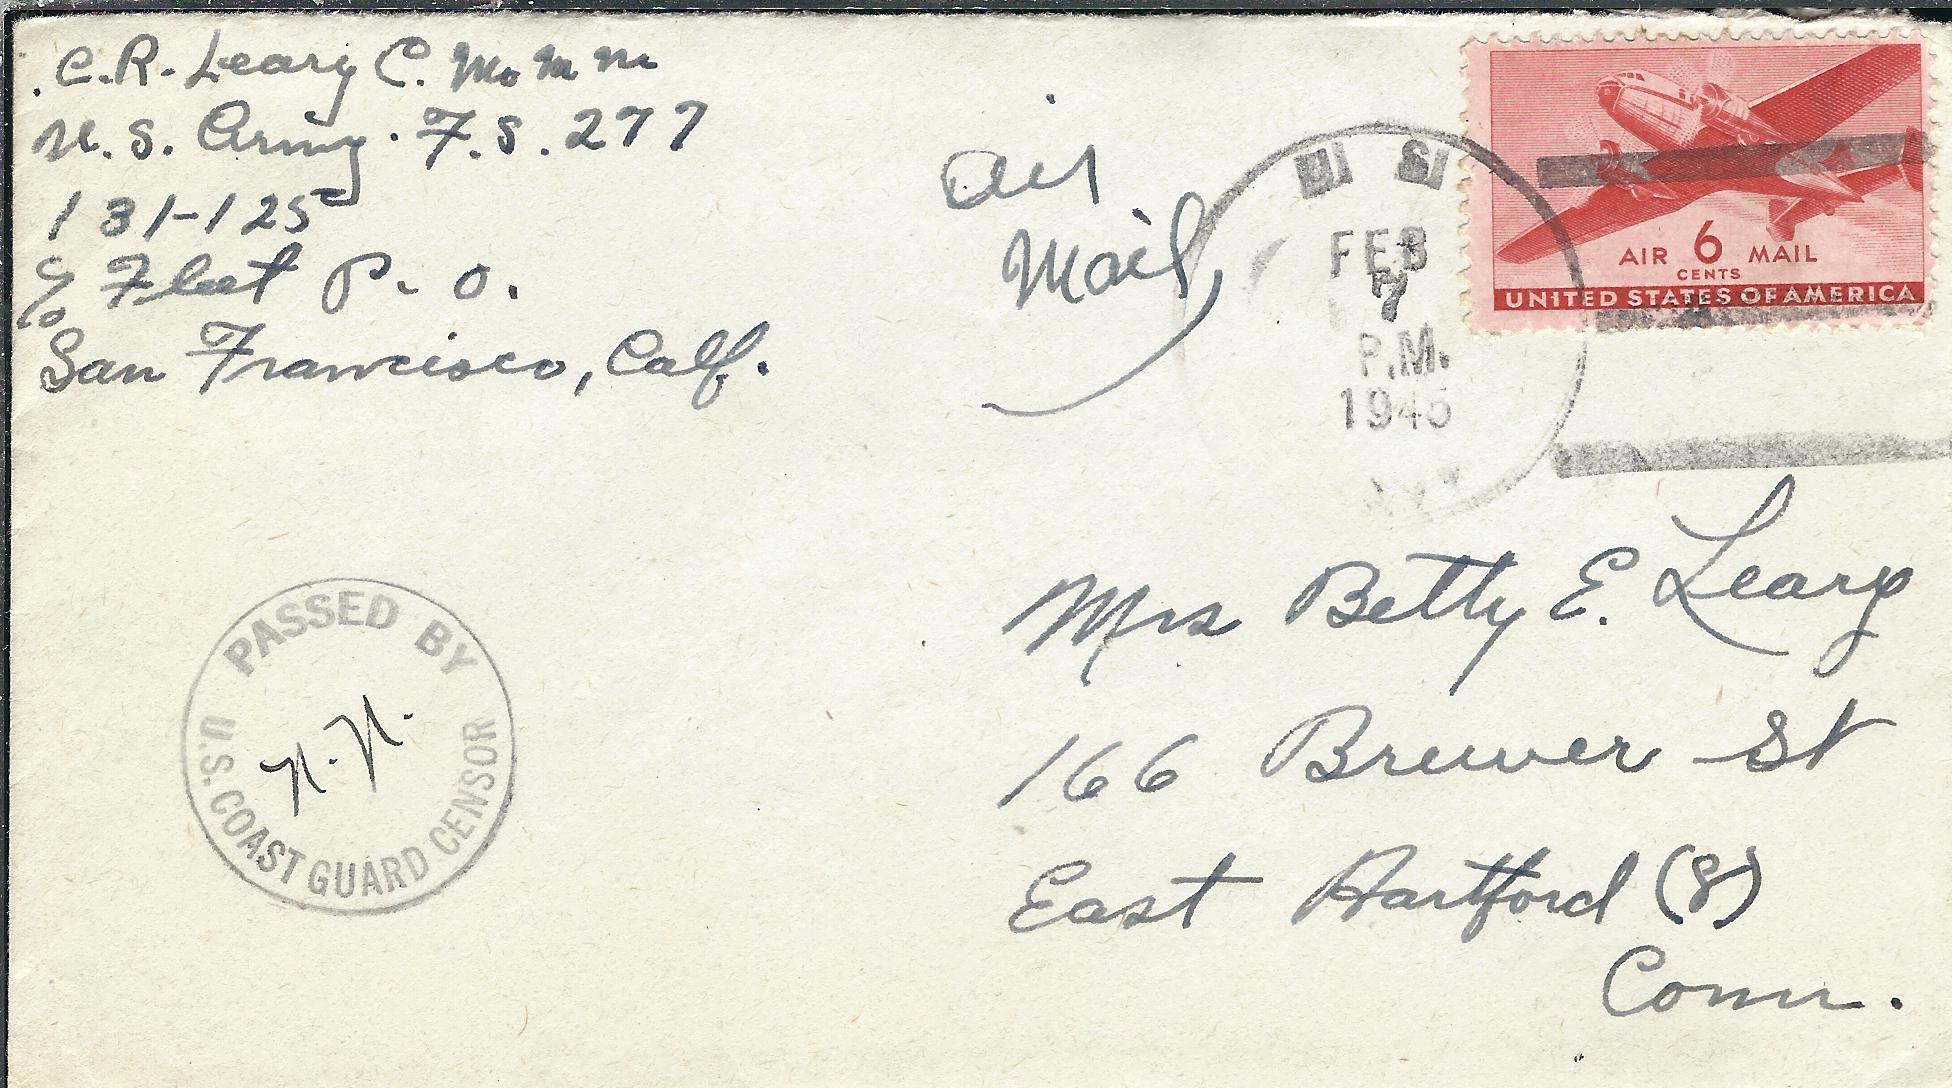 C.R. Leary C. Mo M M
U.S. Army. F.S. 277
131-125
c/o Fleet P. O.
San Francisco, Calf.
Air
Mail
FEB
7
P.M.
AIR 6 MAIL
CENTS
UNITED STATES OF AMERICA
PASSED BY
U.S. COAST GUARD CENSOR
Mrs Betty E. Leary
166 Brewer St
East Hartford (8)
Conn.